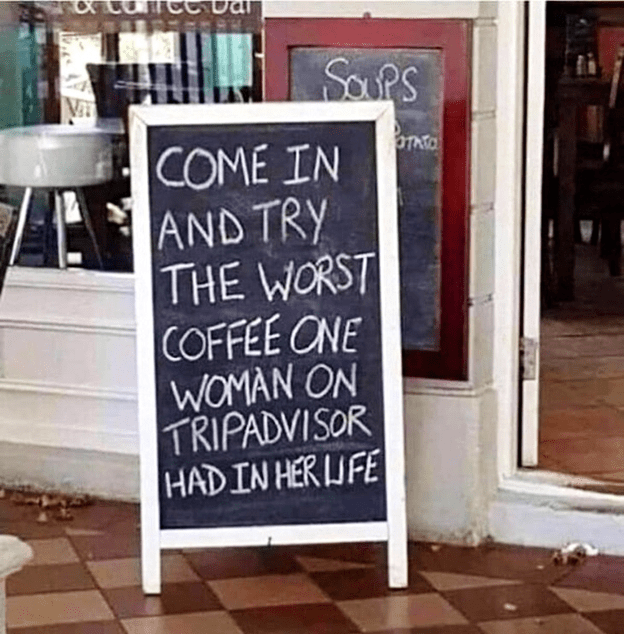 & Coffee Bar
SOUPS
COME IN
AND TRY
THE WORST
COFFEE ONE
WOMAN ON
TRIPADVISOR
HAD IN HER LIFE